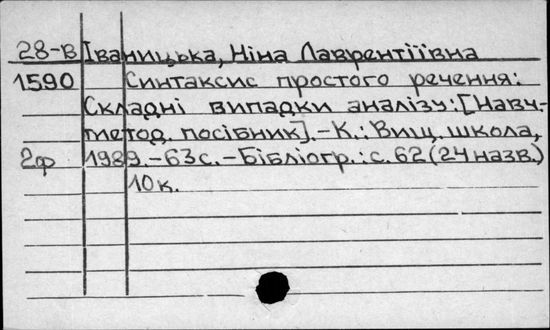 28-В Іваницька, Ніна Лаврентіївна
1590 Синтаксис простого речення:
Складні випадки аналізу: [Навч.-
метод. посібник]. – К.: Вищ. школа,
2ф 1989. – 63с. – Бібліогр.: с. 62 (24 назв.)
10к.